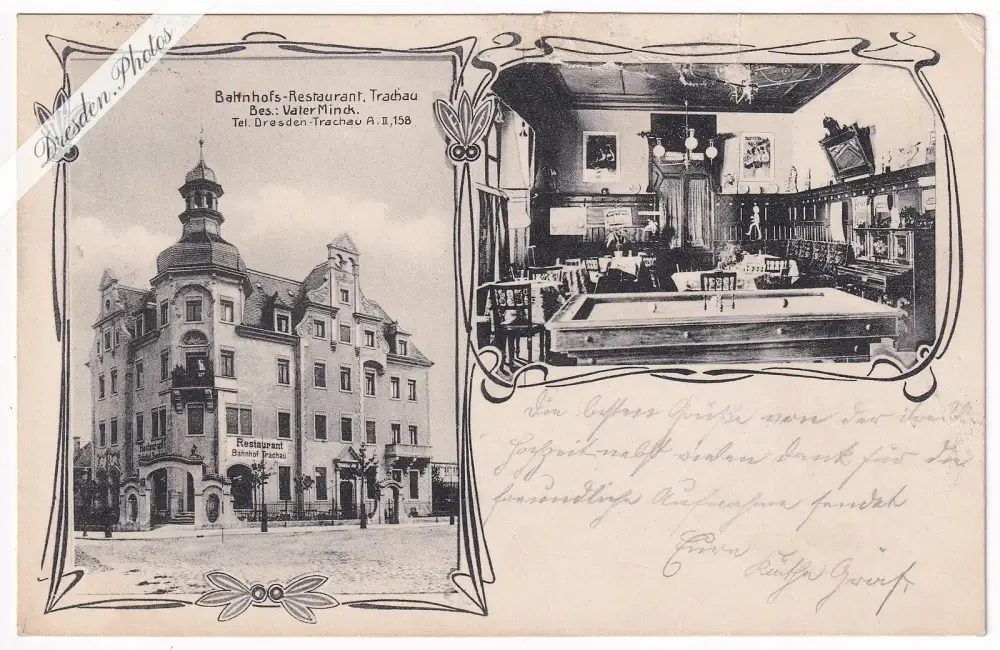 Dresden.Photos
Bahnhofs-Restaurant, Trachau
Bes.: Vater Minck.
Tel. Dresden-Trachau A. II, 158
Restaurant
Bahnhof Trachau
Die besten Grüße von der
Hochzeit nebst vielen Dank für die
freundliche Aufnahme sendet
Eure
Käthe Gräf